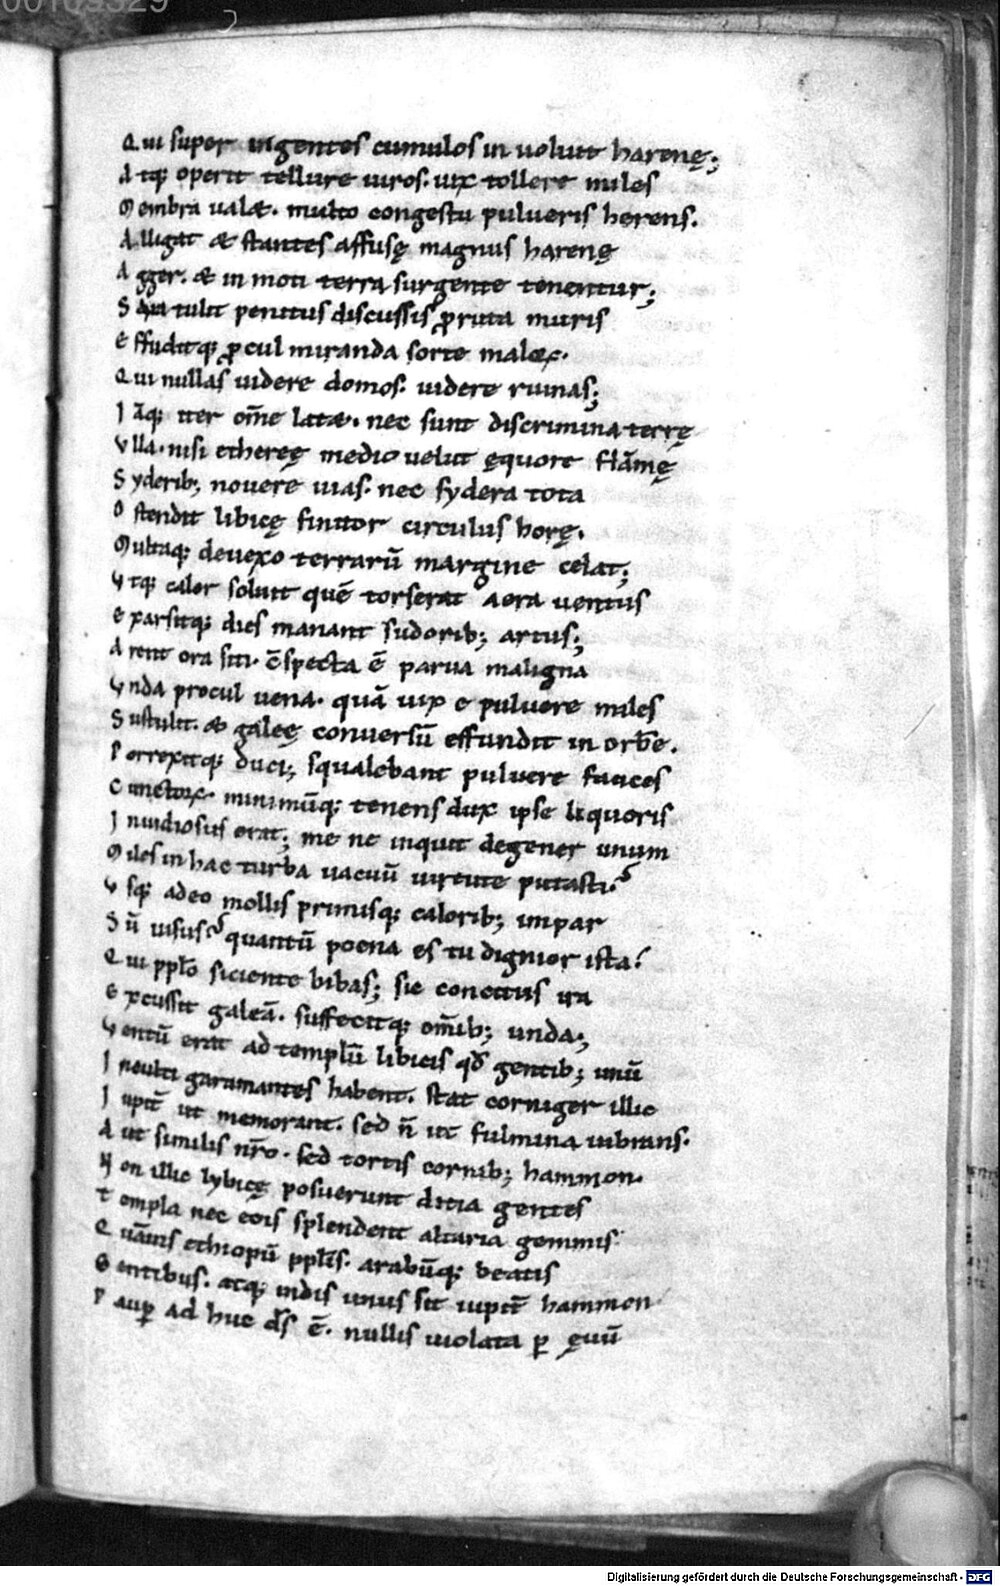 00109329
Qui super ingentes cumulos inuoluit harenę;
Atq; operit tellure uiros. uix tollere miles
Membra ualæ. multo congestu pulueris herens.
Alligat & stantes affusę magnus harenę
Agger. & inmoti terra surgente tenentur;
Saxa tulit penitus discussis ꝓruta muris
Effuditq; ꝓcul miranda sorte maloꝝ.
Qui nullas uidere domos. uidere ruinas;
Iāq; iter om̄e latæ. nec sunt discrimina terrę
Vlla. nisi ethereę medio uelut ęquore flāmę
Syderib; nouere uias. nec sydera tota
Ostendit libicę finitor circulus horę.
Multaq; deuexo terrarū margine celat;
Vtq; calor soluit quē torserat aera uentus
Exarsitq; dies manant sudorib; artus;
Arent ora siti. c̄specta ē parua maligna
Vnda procul uena. quā uix e puluere miles
Sustulit. & galeę conuersū effundit in orbē.
Porrexitq; duci; squalebant puluere fauces
Cunctoꝝ. minimūq; tenens dux ipse liquoris
Inuidiosus erat; me ne inquit degener unum
Miles in hac turba uacuū uirtute putasti?
Vsq; adeo mollis primisq; calorib; impar
Sū uisus? quantū poena es tu dignior ista?
Qui pplo siciente bibas; sic concitus ira
Excussit galeā. suffecitq; om̄ib; unda;
Ventū erat ad templū libicis qd̄ gentib; unū
Inculti garamantes habent. stat corniger illic
Iupit̄ ut memorant. sed n̄ ut fulmina uibrans.
Aut similis nr̄o. sed tortis cornib; hammon.
Non illic lybicę posuerunt ditia gentes
Templa nec eois splendent altaria gemmis.
Quāuis ethiopū pplis. arabūq; beatis
Gentibus. atq; indis unus sit iupit̄ hammon
Pauꝑ ad huc ds̄ ē. nullis uiolata ꝑ ęuū
Digitalisierung gefördert durch die Deutsche Forschungsgemeinschaft - DFG